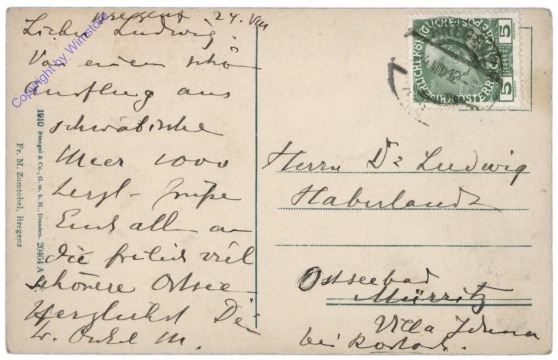 Bregenz 24. VIII
Lieber Ludwig!
Von einem schön
Ausflug ans
schwäbische
Meer 1000
herzl. Grüße
Euch allen an
die freilich viel
schönere Ostsee
Herzlichst Dein
Onkel M.
Copyright by Wimstore
1910 Stengel & Co., G. m. b. H., Dresden. 20464 A
Fr. M. Zumtobel, Bregenz
5 5
Herrn Dr Ludwig
Haberlandt
Ostseebad
Müritz
Villa
bei Rostock.